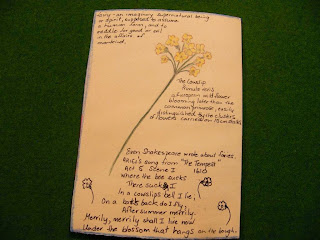 Fairy - an imaginary supernatural being
or spirit, supposed to assume
a human form, and to
meddle for good or evil
in the affairs of
mankind.
The Cowslip
Primula veris
European wildflower
blooming later than the
common primrose, easily
distinguished by the clusters
of flowers carried on 15cm stalks
Even Shakespeare wrote about fairies,
Ariel's song from "The Tempest"
Act 5 Scene I 1610
Where the bee sucks
There suck I
In a cowslip's bell I lie,
On a bat's back do I fly,
After summer merrily.
Merrily, merrily shall I live now
Under the blossom that hangs on the bough.